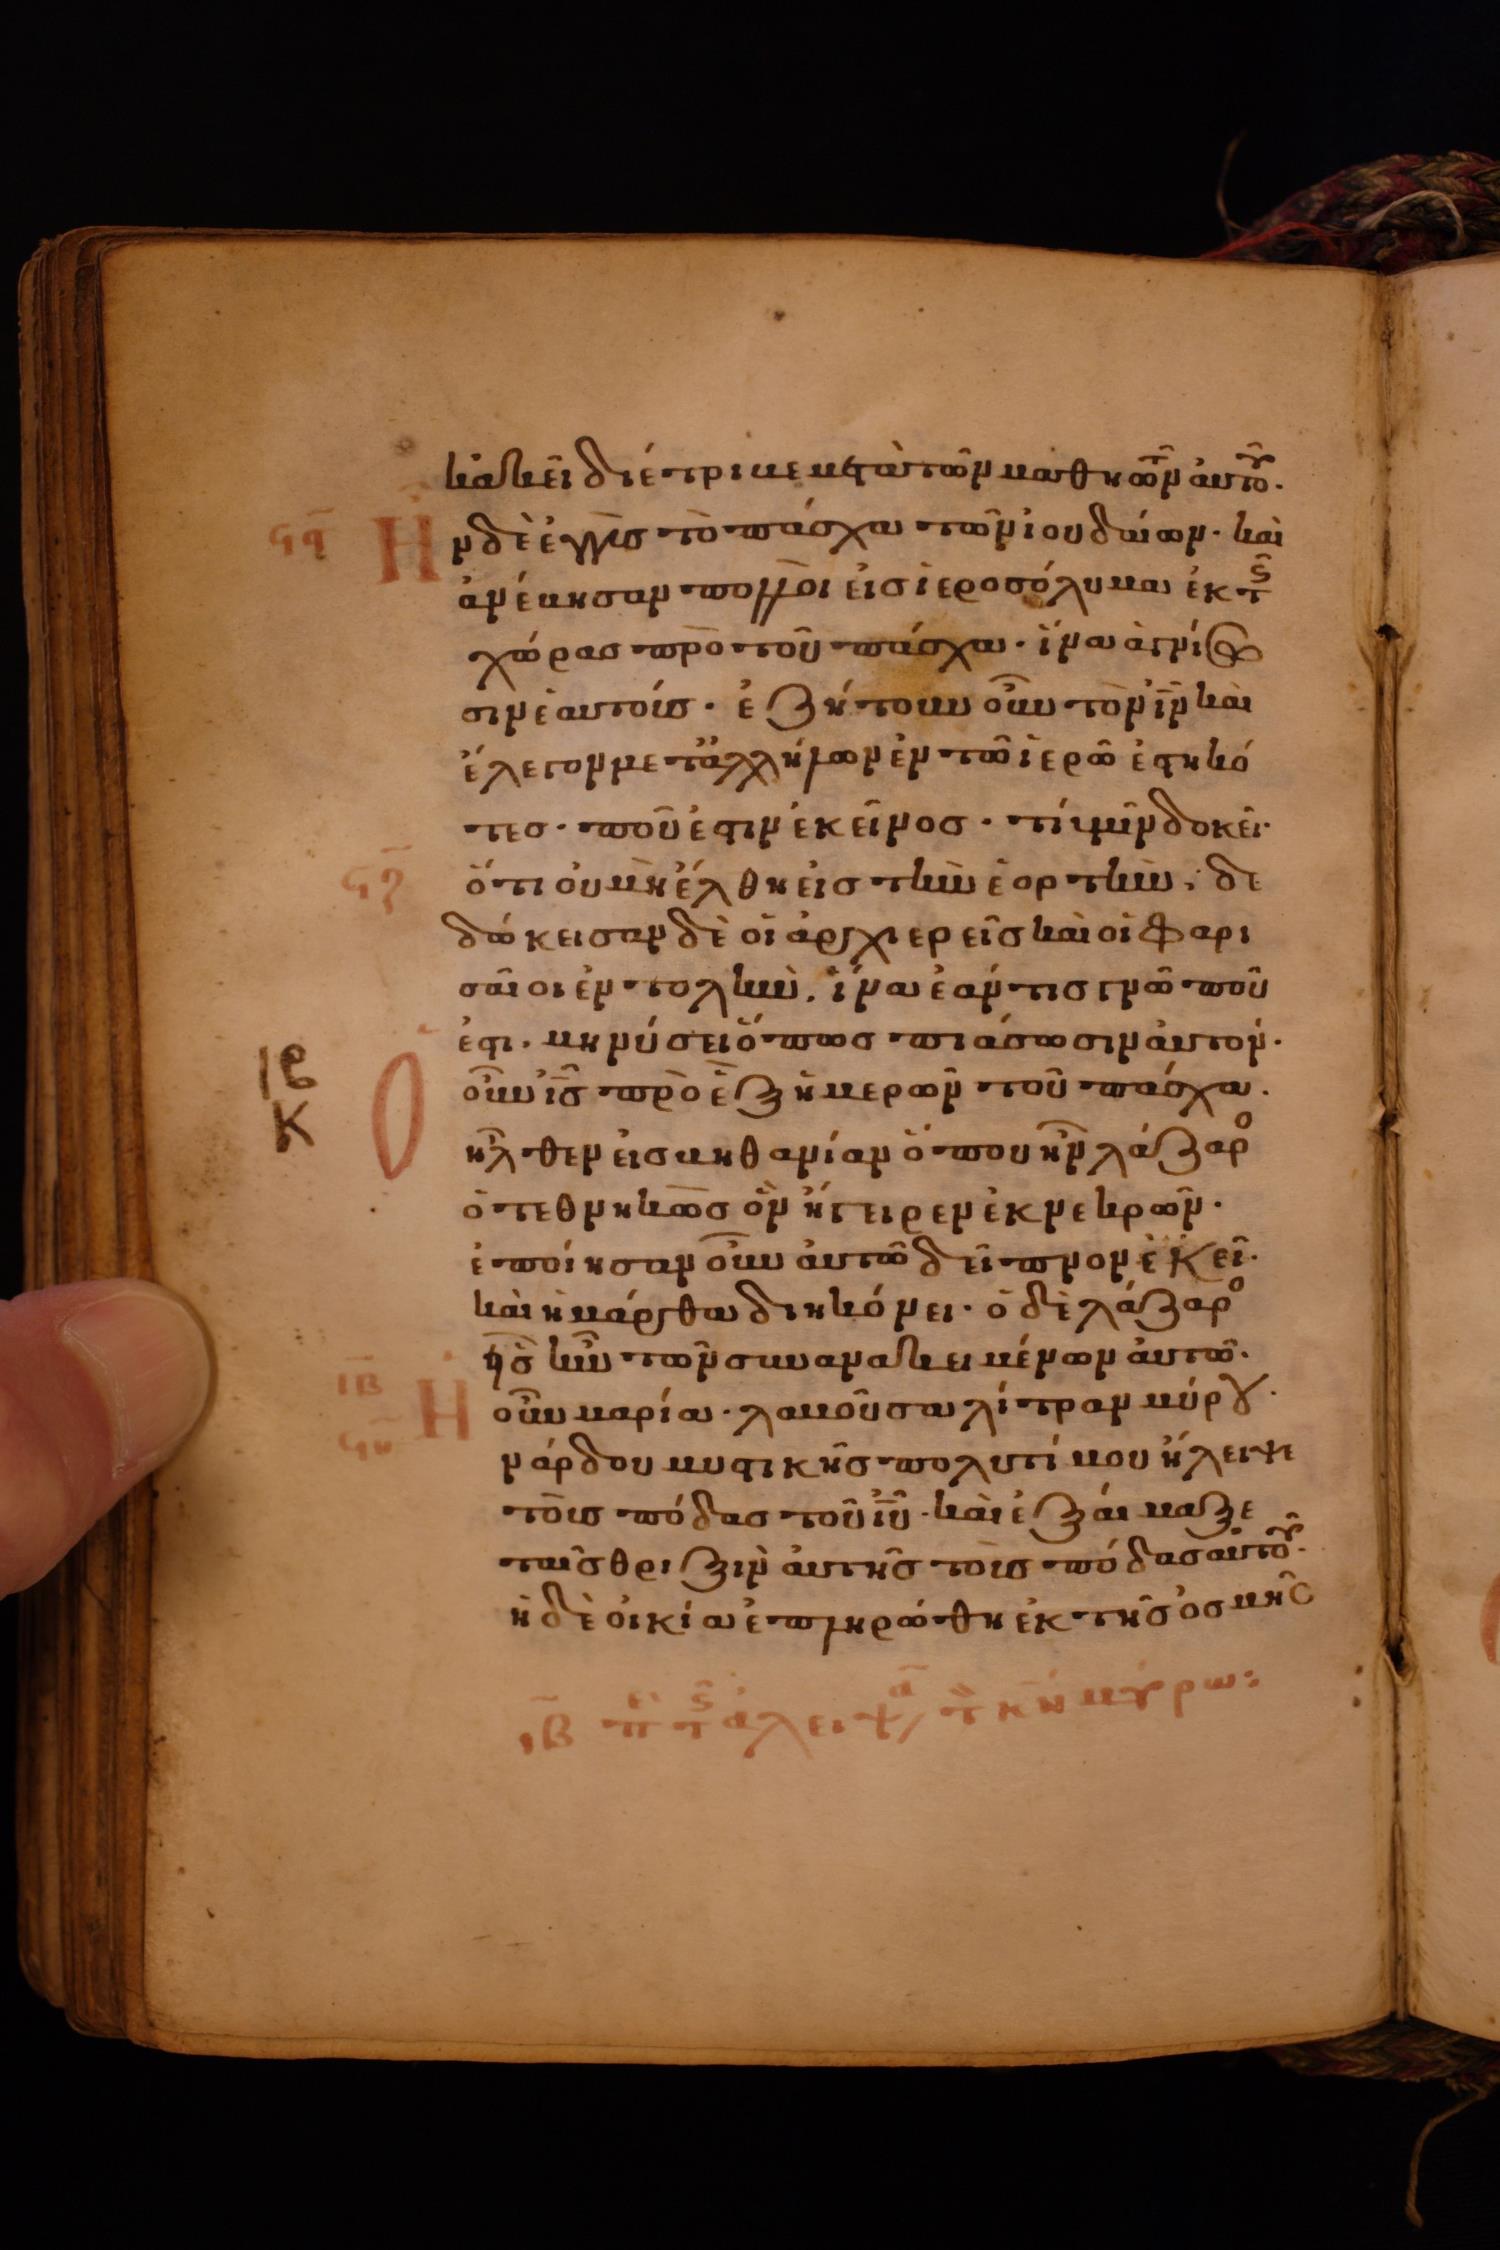 κἀκεῖ διέτριβε μετὰ τῶν μαθητῶν αὐτοῦ·
Ἦ
ν δὲ ἐγγὺς τὸ πάσχα τῶν ἰουδαίων· καὶ
ἀνέβησαν πολλοὶ εἰς ἱεροσόλυμα ἐκ τῆς
χώρας πρὸ τοῦ πάσχα· ἵνα ἁγνίσω
σιν ἑαυτούς· ἐζήτουν οὖν τὸν ἰν̅ καὶ
ἔλεγον μετ' ἀλλήλων ἐν τῶ ἱερῶ ἑστηκό
τες· ποῦ ἐστιν ἐκεῖνος· τί ὑμῖν δοκεῖ·
ὅτι οὐ μὴ ἔλθη εἰς τὴν ἑορτήν; δε
δώκεισαν δὲ οἱ ἀρχιερεῖς καὶ οἱ φαρι
σαῖοι ἐντολὴν, ἵνα ἐάν τις γνῶ ποῦ
ἐστι· μηνύσει ὅπως πιάσωσιν αὐτόν·
ιβ
κ
Ὁ
οὖν ις̅ πρὸ ἓξ ἡμερῶν τοῦ πάσχα·
ἦλθεν εἰς βηθανίαν ὅπου ἦν λάζαρος
ὁ τεθνηκὼς ὃν ἤγειρεν ἐκ νεκρῶν·
ἐποίησαν οὖν αὐτῶ δεῖπνον ἐκεῖ·
καὶ ἡ μάρθα διηκόνει· ὁ δὲ λάζαρος
εἷς ἦν τῶν συνανακειμένων αὐτῶ·
ιβ̅
Ἡ
οὖν μαρία· λαβοῦσα λίτραν μύρου·
νάρδου πιστικῆς πολυτίμου ἤλειψε
τοὺς πόδας τοῦ ιυ̅· καὶ ἐξέμαξε
ταῖς θριξὶν αὐτῆς τοὺς πόδας αὐτοῦ·
ἡ δὲ οἰκία ἐπληρώθη ἐκ τῆς ὀσμῆς
ιβ̅ πε τῆς ἀλειψά τ κν μύρω: